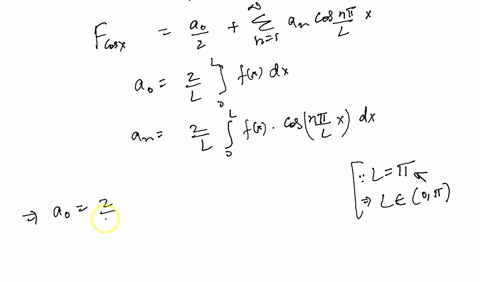 F_cosx = a₀/2 + ∞ Σ n=1 aₙ cos nπ/L x
a₀ = 2/L ∫₀ᴸ f(x) dx
aₙ = 2/L ∫₀ᴸ f(x) · cos(nπ/L x) dx
∵ L = π
⇒ L ∈ (0, π)
⇒ a₀ = 2/